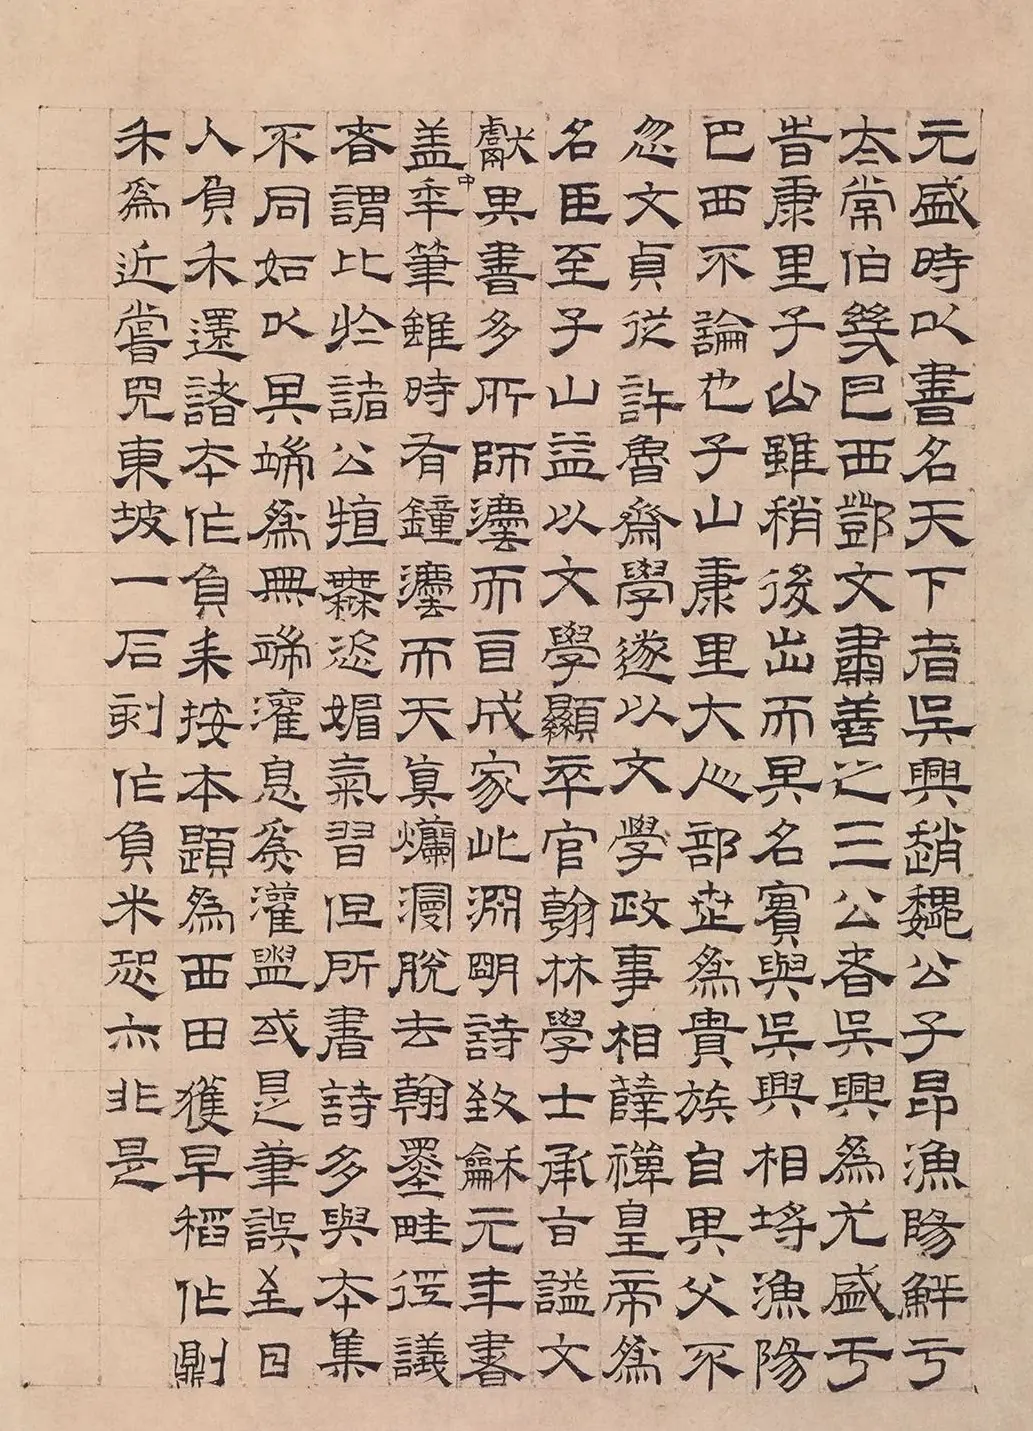 元盛時以書名天下者吳興趙魏公子昂漁陽鮮于
太常伯幾巴西鄧文肅善之三公者吳興為尤盛于
昔康里子山雖稍後出而其名實與吳興相埒漁陽
巴西不論也子山康里大人部世為貴族自其父不
忽文貞從許魯齋學遂以文學政事相薛禪皇帝為
名臣至子山益以文學顯卒官翰林學士承旨謚文
獻其書多所師灋而自成家此淵明詩致龢元年書
盖中年筆雖時有鐘灋而天真爛漫脫去翰墨畦徑議
者謂比於諸公犆無恣媚氣習但所書詩多與本集
不同如以異端為無端濯息為濯盥或是筆誤至日
人負禾還諸本作負耒按本題為西田獲早稻作則
禾為近嘗見東坡一石刻作負米恐亦非是